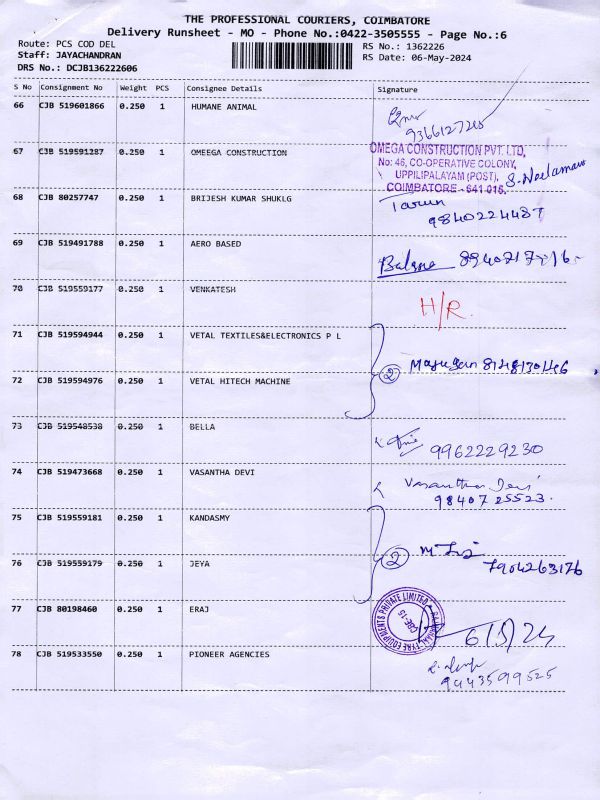 THE PROFESSIONAL COURIERS, COIMBATORE
Delivery Runsheet - MO - Phone No.:0422-3505555 - Page No.:6
Route: PCS COD DEL
Staff: JAYACHANDRAN
DRS No.: DCJB136222606
RS No.: 1362226
RS Date: 06-May-2024
S No Consignment No Weight PCS Consignee Details Signature
66 CJB 519601866 0.250 1 HUMANE ANIMAL
67 CJB 519591287 0.250 1 OMEEGA CONSTRUCTION
OMEGA CONSTRUCTION PVT. LTD,
No: 46, CO-OPERATIVE COLONY,
UPPILIPALAYAM (POST),
COIMBATORE - 641 015.
68 CJB 80257747 0.250 1 BRIJESH KUMAR SHUKLG Tarun
9840224487
69 CJB 519491788 0.250 1 AERO BASED
70 CJB 519559177 0.250 1 VENKATESH H/R.
71 CJB 519594944 0.250 1 VETAL TEXTILES&ELECTRONICS P L
2
72 CJB 519594976 0.250 1 VETAL HITECH MACHINE
73 CJB 519548538 0.250 1 BELLA 9962229230
74 CJB 519473668 0.250 1 VASANTHA DEVI Vasantha Devi
98407 25523.
75 CJB 519559181 0.250 1 KANDASMY
2
76 CJB 519559179 0.250 1 JEYA 7904263176
77 CJB 80198460 0.250 1 ERAJ 6/5/24
78 CJB 519533550 0.250 1 PIONEER AGENCIES
9443599525